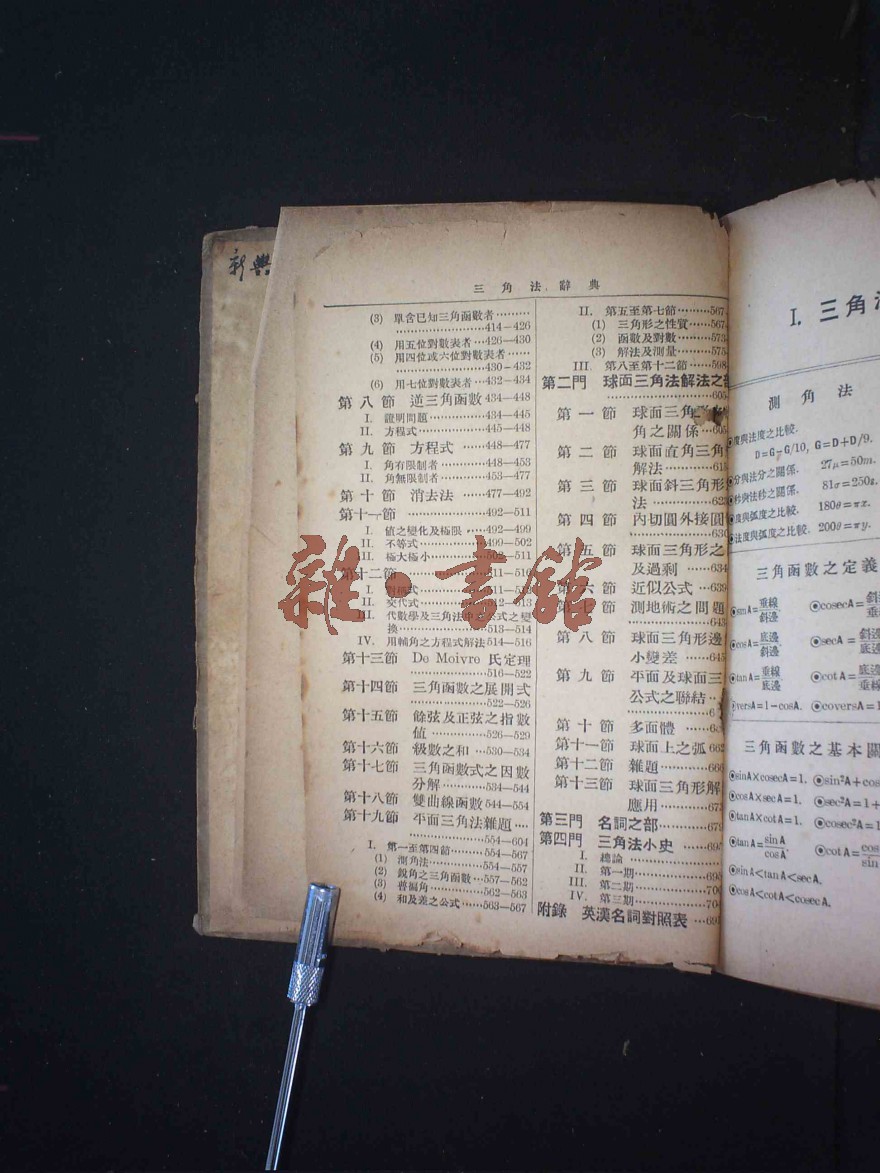 新典
三角法辭典
(3) 單含已知三角函數者………
………………414—426
(4) 用五位對數表者…426—430
(5) 用四位或六位對數表者……
………………430—432
(6) 用七位對數表者…432—434
第八節 逆三角函數 434—448
I. 證明問題………434—445
II. 方程式…………445—448
第九節 方程式……448—477
I. 角有限制者……448—453
II. 角無限制者……453—477
第十節 消去法……477—492
第十一節………………492—511
I. 值之變化及極限…492—499
II. 不等式…………499—502
III. 極大極小………502—511
第十二節
II. 交代式
IV. 用輔角之方程式解法 514—516
第十三節 De Moivre 氏定理
………………516—522
第十四節 三角函數之展開式
………………522—526
第十五節 餘弦及正弦之指數
值…………526—529
第十六節 級數之和…530—534
第十七節 三角函數式之因數
分解………534—544
第十八節 雙曲線函數 544—554
第十九節 平面三角法雜題…
………………554—604
I. 第一至第四節……554—567
(1) 測角法…………554—557
(2) 銳角之三角函數…557—562
(3) 普徧角…………562—563
(4) 和及差之公式……563—567
II. 第五至第七節………567
(1) 三角形之性質……567
(2) 函數及對數………573
(3) 解法及測量………575
III. 第八至第十二節……598
第二門 球面三角法解法之部
………………605
第一節 球面三角
角之關係…605
第二節 球面直角三角
解法………615
第三節 球面斜三角形
法…………622
第四節 內切圓外接圓
………………630
第五節 球面三角形之
及過剩……634
第六節 近似公式…639
第七節 測地術之問題
………………643
第八節 球面三角形邊
小變差……645
第九節 平面及球面三
公式之聯結
第十節 多面體
第十一節 球面上之弧 662
第十二節 雜題………666
第十三節 球面三角形解
應用………673
第三門 名詞之部………679
第四門 三角法小史…695
I. 總論
II. 第一期
III. 第二期
IV. 第三期
附錄 英漢名詞對照表
I. 三角
測角法
度與法度之比較.
D=G—G/10, G=D+D/9.
分與法分之關係. 27μ=50m.
秒與法秒之關係. 81σ=250s.
度與弧度之比較. 180θ=πx.
法度與弧度之比較. 200θ=πy.
三角函數之定義
sinA=垂線/斜邊 cosecA=
cosA=底邊/斜邊 secA=
tanA=垂線/底邊 cotA=
versA=1—cosA. coversA=1
三角函數之基本關
sinA×cosecA=1. sin²A+cos
cosA×secA=1. sec²A=1+
tanA×cotA=1. cosec²A=1
tanA=sinA/cosA. cotA=cos/sin
sinA<tanA<secA.
cosA<cotA<cosecA.
雜·書館